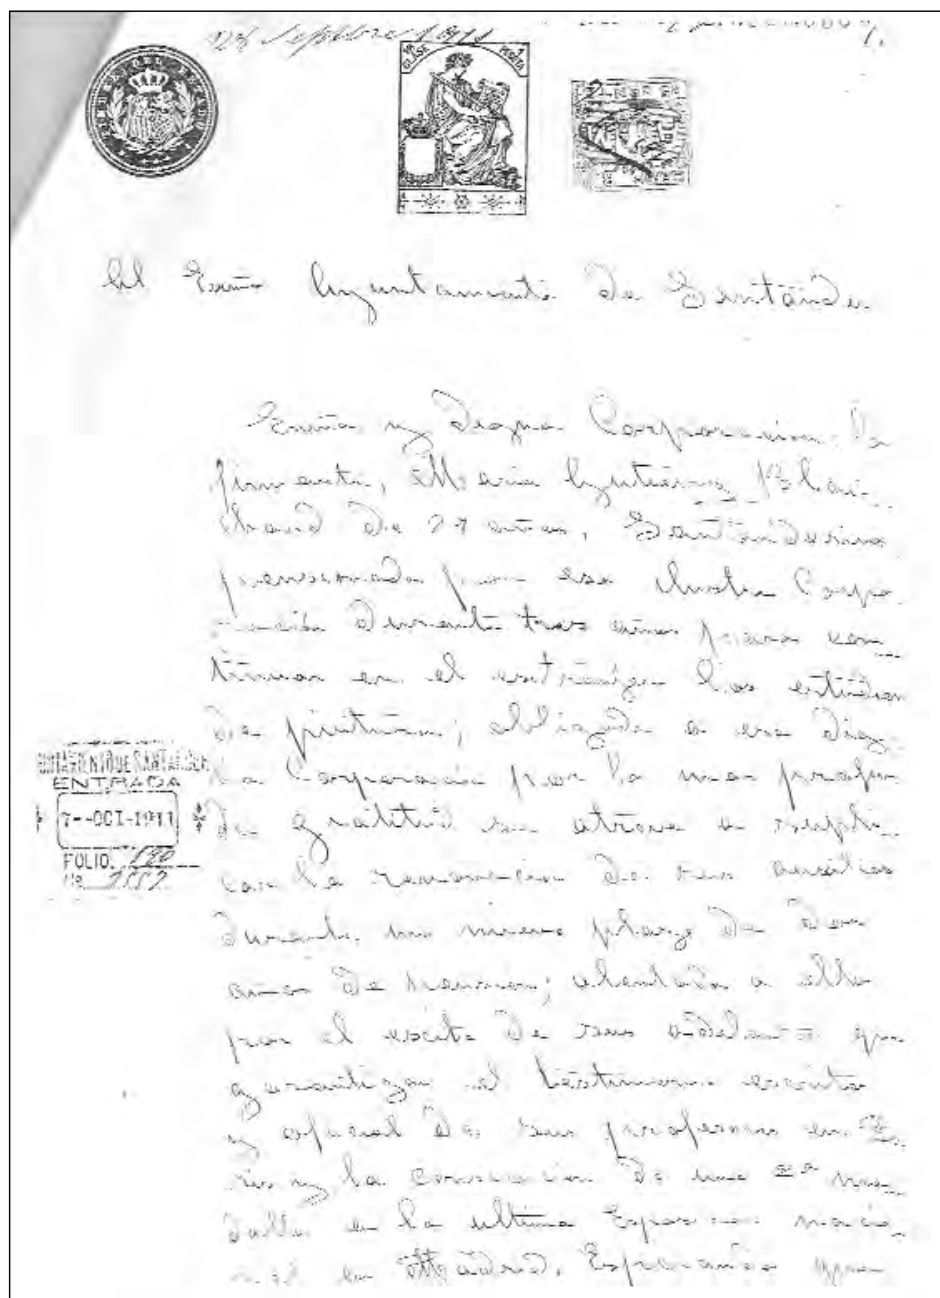 28 Septbre 1911
TIMBRE DEL ESTADO
CLASE 1 PESETA
Al Exmo Ayuntamiento de Santander
Exma y Digna Corporacion: La
firmante, Maria Gutierrez Blan-
chard de 27 años, Santanderina
pensionada por esa Ilustre Corpo-
ración durante tres años para con-
tinuar en el extranjero los estudios
de pintura; obligada a esa Dig-
na Corporación por la mas profun-
da gratitud se atreve a supli-
car la renovacion de sus auxilios
durante un nuevo plazo de dos
años de menos; alentada a ello
por el exito de sus adelantos que
garantizan el testimonio escrito
y oficial de sus profesores en Pa-
ris y la concesion de una 2ª me-
dalla en la ultima Exposicion nacio-
nal en Madrid. Esperando que
AYUNTAMIENTO DE SANTANDER
ENTRADA
7--OCT-1911
FOLIO
No